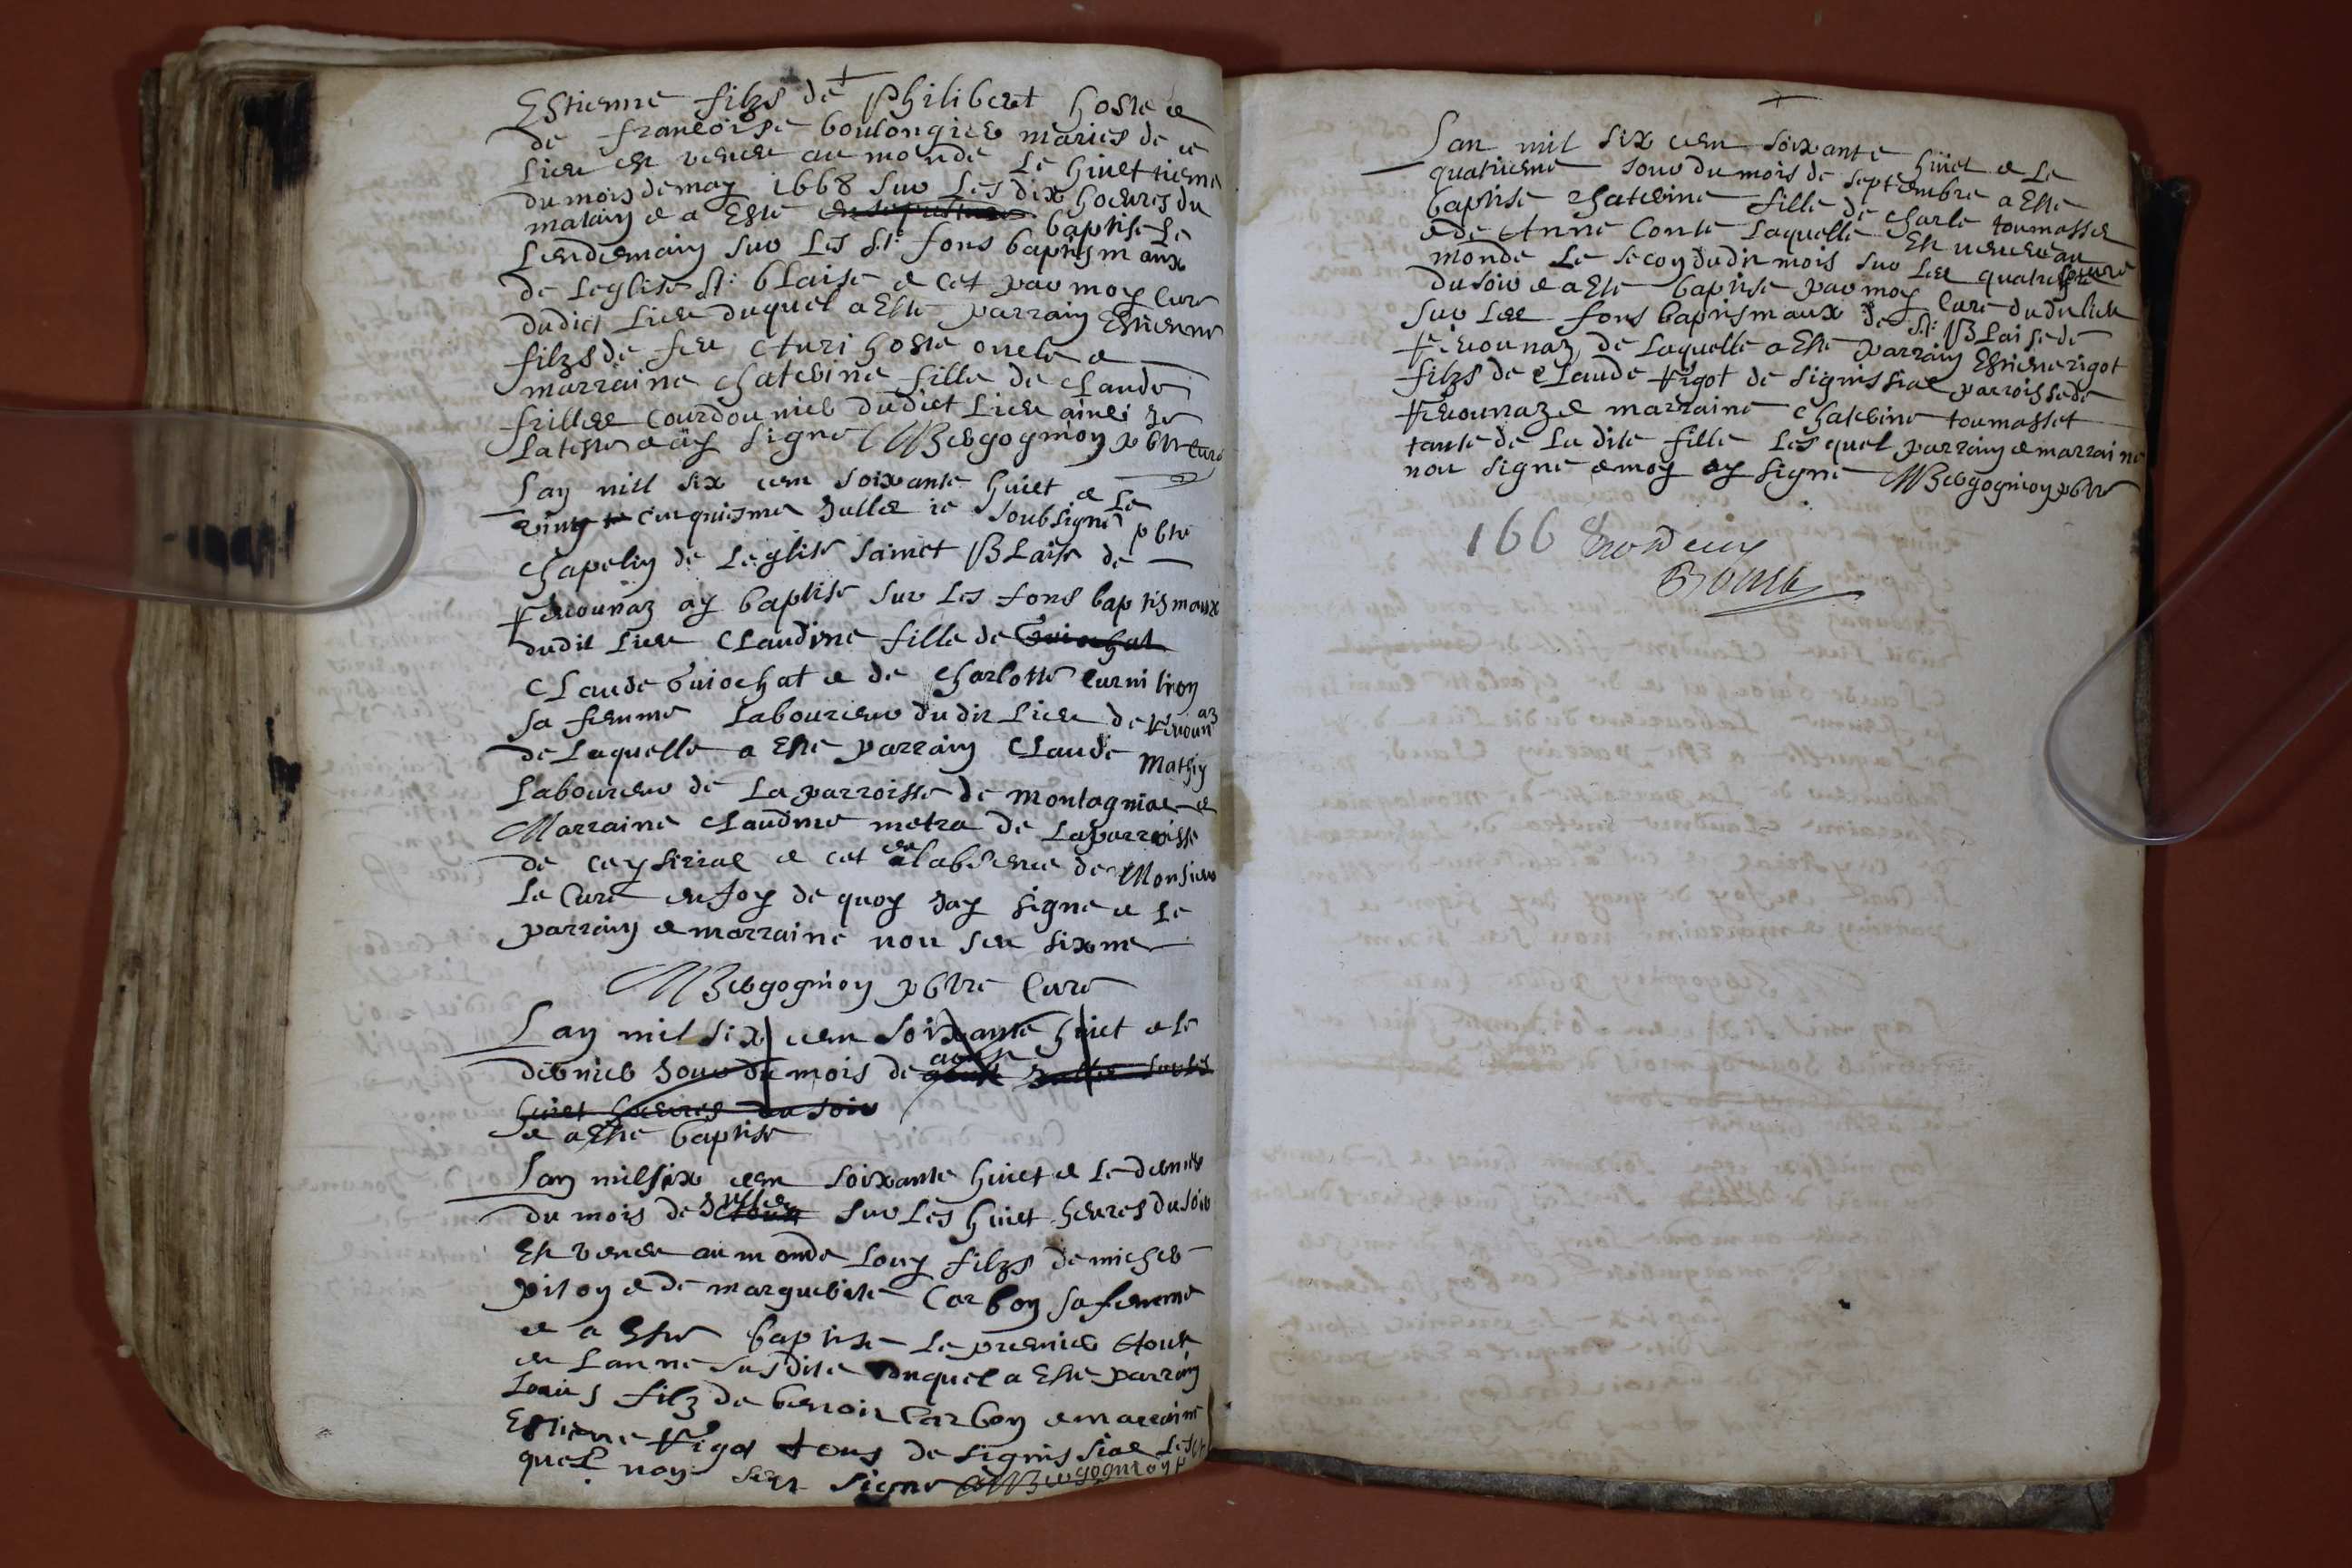 Estienne filzs de Philibert hoste et
de francoise boulongier maries de ce
lieu est venu au monde le huiettieme
du mois de may 1668 sur les dix hoeures du
matain et a Este baptise le
lendemain sur les St: fons baptismaux
de leglise St: blaise et cet par moy Cure
dudict lieu duquel a Este parrain Estienne
filzs de feu hoste oncle et
marraine Chaterine fille de claude
frillee Courdounier dudict lieu ainsi je
lateste et ay signe MBergognion pbtre Cure
Lan mill six cen soixante huict et le
vingt cinquiesme Jullet ie soubsigné pbtre
chapelin de leglise sainct BLaise de
ay baptise sur les fons baptismaux
dudit lieu CLaudine fille de Guiochat
CLaude Guiochat et de Charlotte Curnilion
sa femme laboureur du dit lieu de
de laquelle a Este parrain CLaude Mathiy
laboureur de La parroisse de montagniae et
Marraine claudine metra de Laparroisse
de ceysiriae et cet en labsence de Monsieur
le Cure en foy de quoy Jay signe et le
parrain et marraine non seu
MBergognion pbtre Cure
Lan mil six cen soixante huict et le
dernier Jour du mois de aoust Jullet sur les
huict hoeures du soir
et a Este baptise
Lan mil six cen soixante huict et le dernier
du mois de Jullet sur les huict heures du soir
Est venu au monde Louy filzs de micher
piton et de marguerite Carbon sa femme
et a Este baptise le premier Aout
en Lanne susdite duquel a Este parrain
Louis filz de benoit Carbon et marraine
Estiene Rigot tous de signissiae lest
quel non seu signe MBergognion p
Lan mil six cen soixante huict et le
quatrieme Jour du mois de septembre a Este
baptise Chaterine fille de Charle toumasset
et de Anne Conte Laquelle Est venue au
monde Le second dudit mois sur les quatre hoeure
du soir et a Este baptise par moy Cure dudit lieu
sur les fons baptismaux de St: BLaise de
de Laquelle a Este parrain Estiene rigot
filzs de CLaude Rigot de signissiae parroisse de
et marraine Chaterine toumasset
tante de La dite fille lesquel parrain et marraine
non signe et moy ay signe MBergognion pbtre
1668